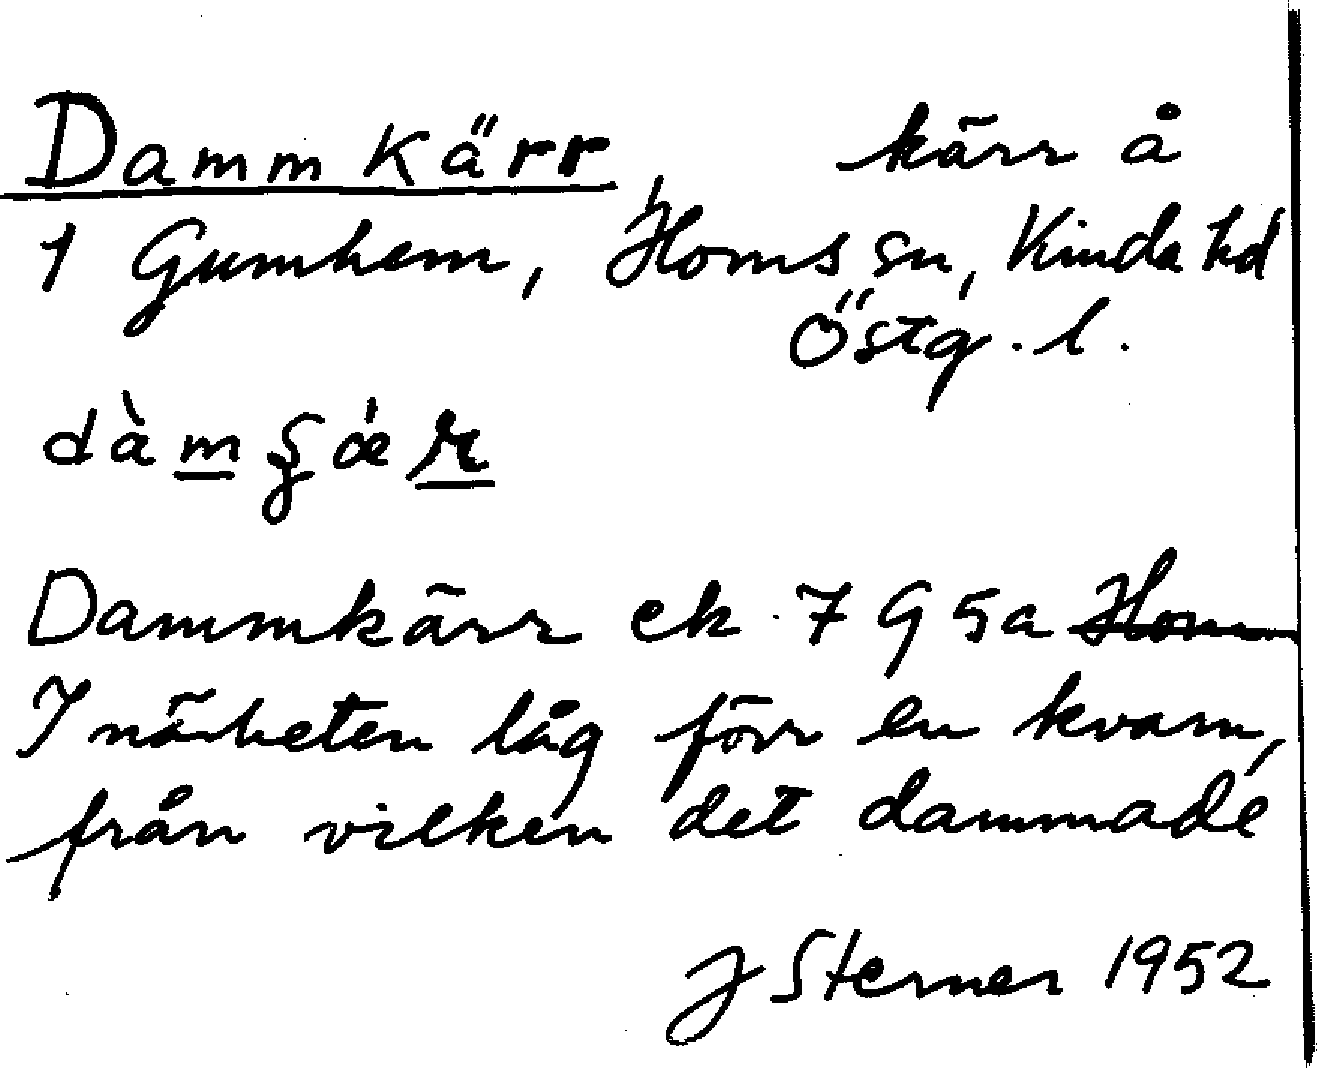 Dammkärr, kärr å
1 Gumhem, Horns sn, Kinda hd
Östg. l.
dàmʂǽr
Dammkärr ek 7 G 5a Horn
I närheten låg förr en kvarn,
från vilken det dammade
J Sterner 1952